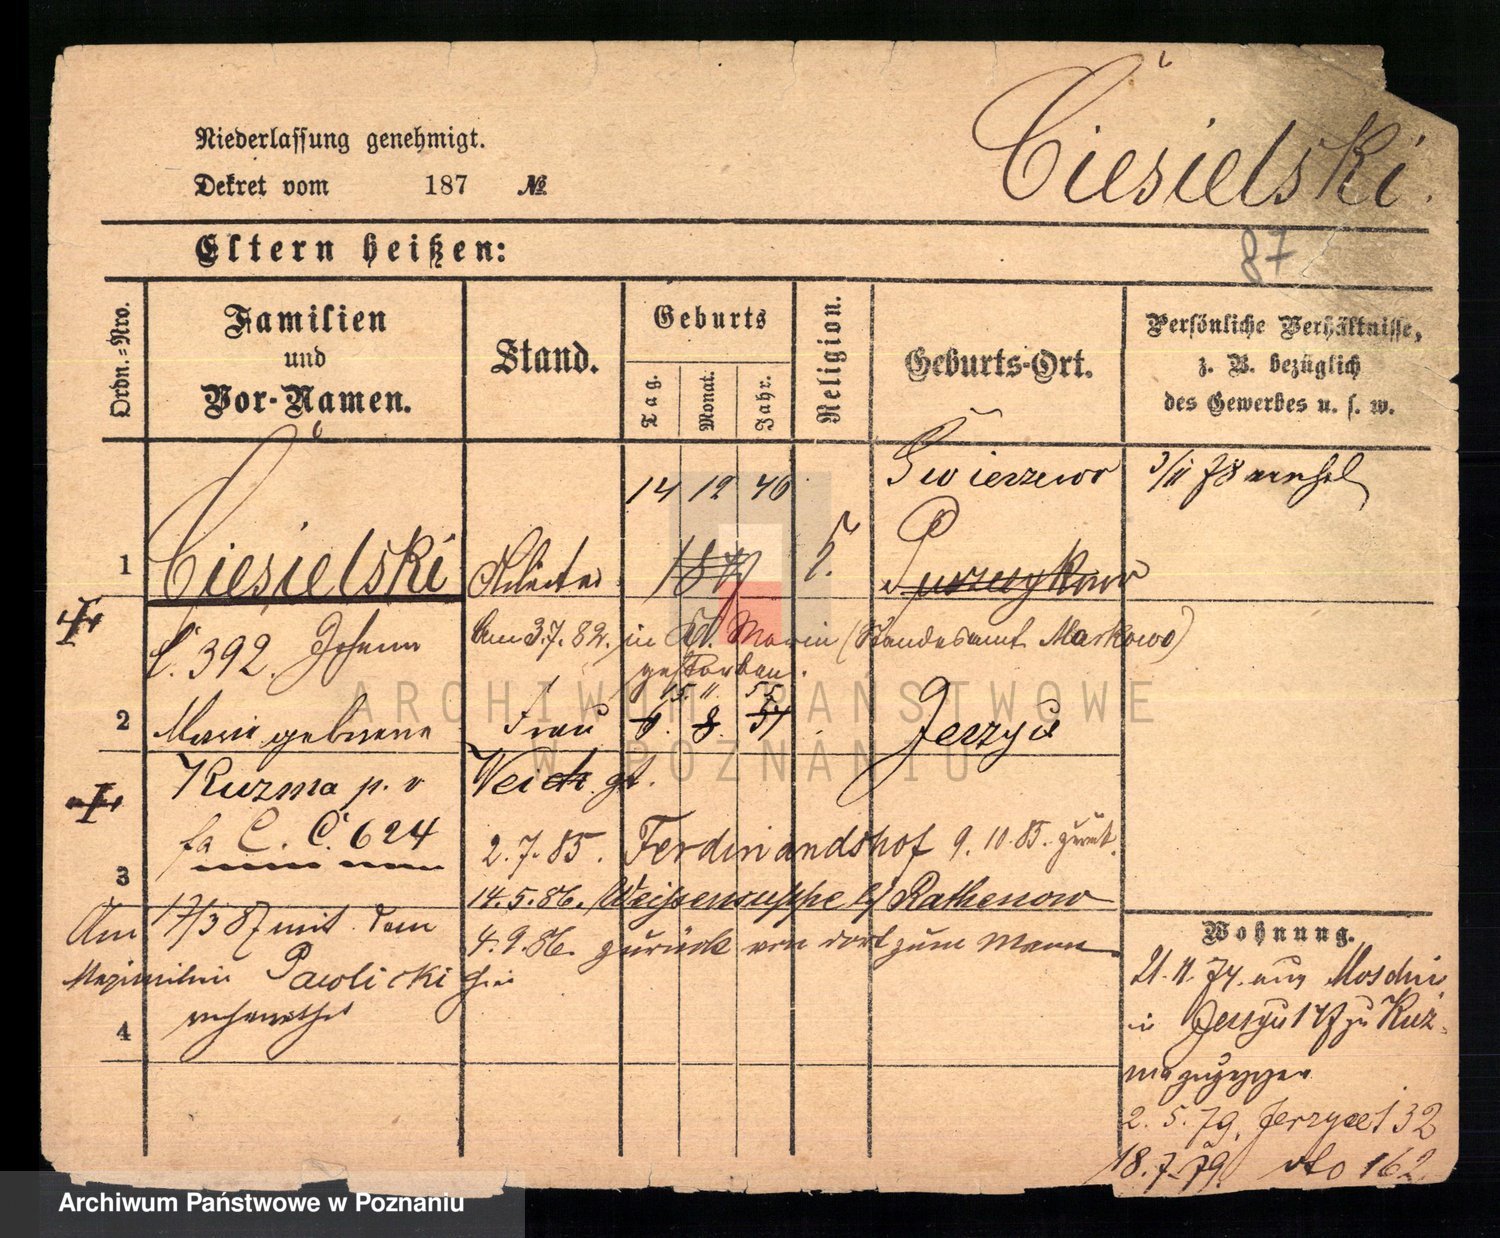 Ciesielski.
Niederlassung genehmigt.
Dekret vom 187 №
Eltern heißen:
87
Ordn.=Nro.
Familien
und
Vor-Namen.
Stand.
Geburts
Tag.
Monat.
Jahr.
Religion.
Geburts-Ort.
Persönliche Verhältnisse,
z. B. bezüglich
des Gewerbes u. s. w.
14 12 46
3/11 78
1
Ciesielski
C. 392. Johann
Am 3.7.82. in St. Marein (Standesamt Markowo)
gestorben.
15. 11 55
2
Marie geborene
Frau
6. 8. 57
Jerzyce
Kuzma p. v
fa C. C. 624
2.7.85. Ferdinandshof 9.10.85. zurück.
3
14.5.86. b/ Rathenow
Am 17/3 87 mit dem
4.9.86. zurück von dort zum Mann
Maximilian Pawlicki
4
Wohnung.
21.11.74. aus Moschin
in Jerzyce 147 zu Kuz-
ma zugezogen
2.5.79. Jerzyce 132
18.7.79. dto 162
ARCHIWUM PAŃSTWOWE
W POZNANIU
Archiwum Państwowe w Poznaniu